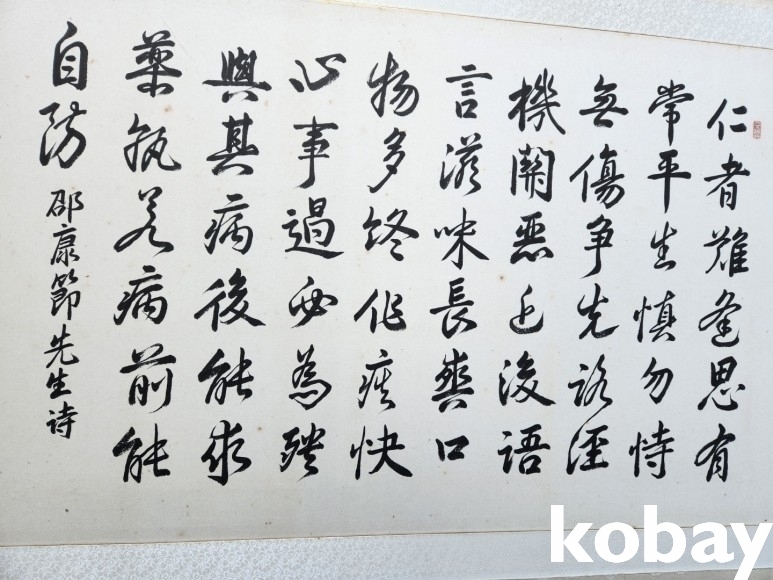 仁者難逢思有
常平生慎勿恃
無傷爭先路徑
機關惡近後語
言滋味長爽口
物多終作疾快
心事過必為殃
與其病後能求
藥孰若病前能
自防 邵康節先生詩
kobay